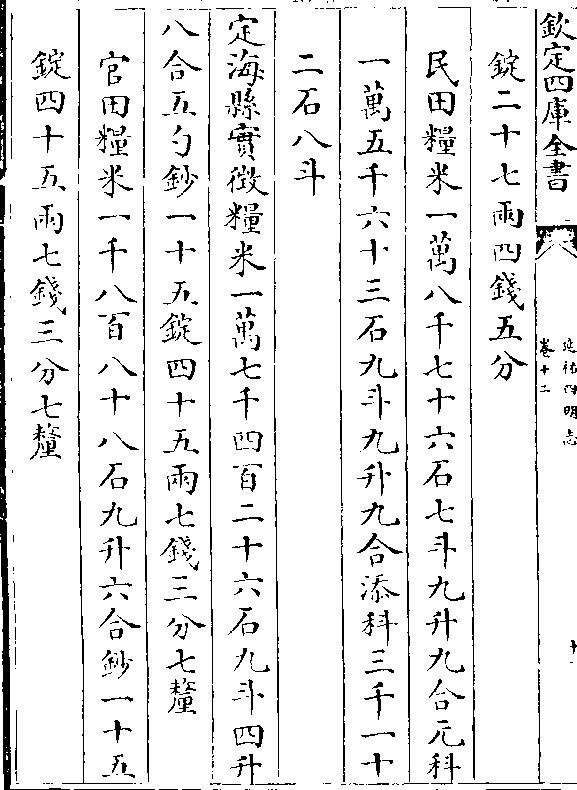 欽定四庫全書
延祐四明志
卷十二
十一
錠二十七兩四錢五分
民田糧米一萬八千七十六石七斗九升九合元科
一萬五千六十三石九斗九升九合添科三千一十
二石八斗
定海縣實徵糧米一萬七千四百二十六石九斗四升
八合五勺鈔一十五錠四十五兩七錢三分七釐
官田糧米一千八百八十八石九升六合鈔一十五
錠四十五兩七錢三分七釐